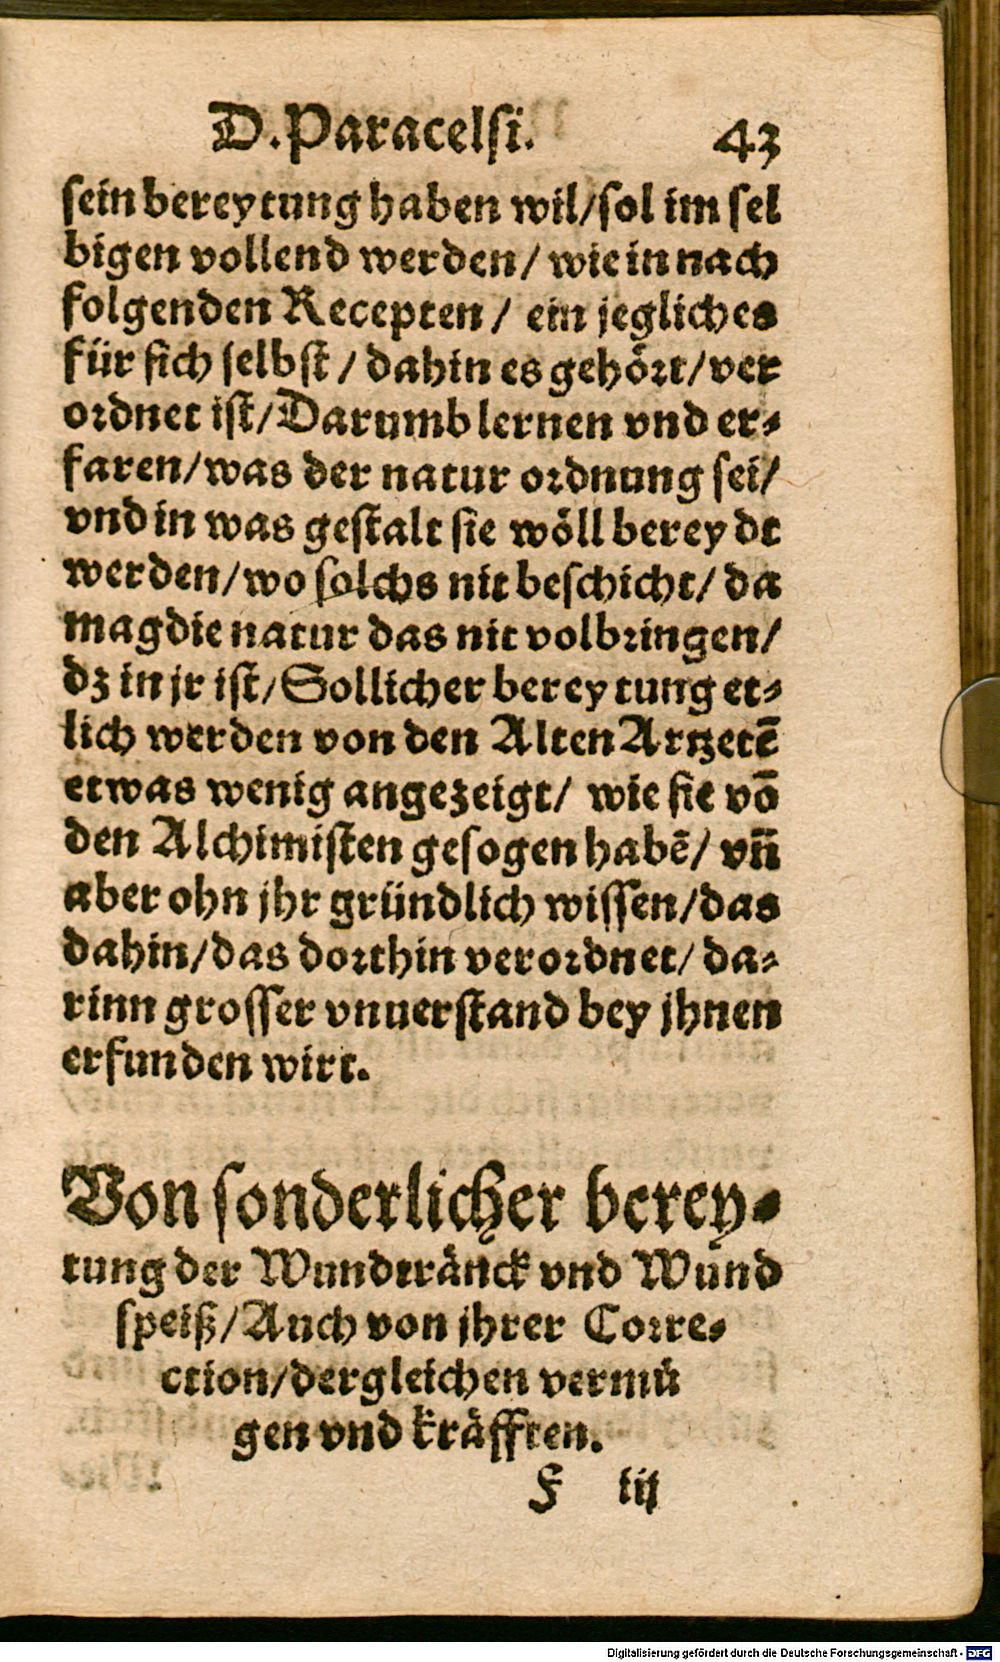 D. Paracelsi. 43
sein bereytung haben wil/ sol im sel
bigen vollend werden/ wie in nach
folgenden Recepten/ ein jegliches
für sich selbst/ dahin es gehört/ ver
ordnet ist/ Darumb lernen vnd er-
faren/ was der natur ordnung sei/
vnd in was gestalt sie wöll bereydt
werden/ wo solchs nit beschicht/ da
mag die natur das nit volbringen/
dz in jr ist/ Sollicher bereytung et-
lich werden von den Alten Artzetē
etwas wenig angezeigt/ wie sie vō
den Alchimisten gesogen habē/ vn̄
aber ohn jhr gründlich wissen/ das
dahin/ das dorthin verordnet/ da-
rinn grosser vnuerstand bey jhnen
erfunden wirt.
Von sonderlicher berey-
tung der Wundtränck vnd Wund
speiß/ Auch von jhrer Corre-
ction/ dergleichen vermü
gen vnd kräfften.
F iij
Digitalisierung gefördert durch die Deutsche Forschungsgemeinschaft - DFG